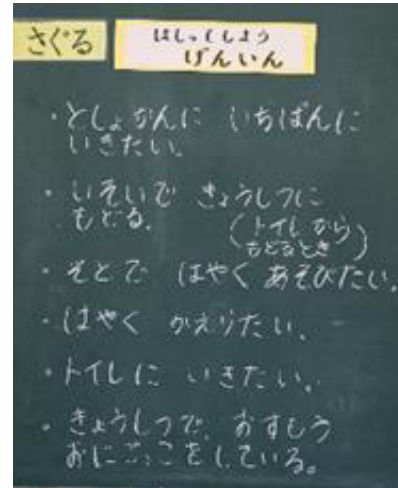 さぐる
はしってしまう
げんいん
・としょかんに いちばんに
いきたい。
・いそいで きょうしつに
もどる。
(トイレから
もどるとき)
・そとで はやく あそびたい。
・はやく かえりたい。
・トイレに いきたい。
・きょうしつで、おすもう
おにごっこをしている。